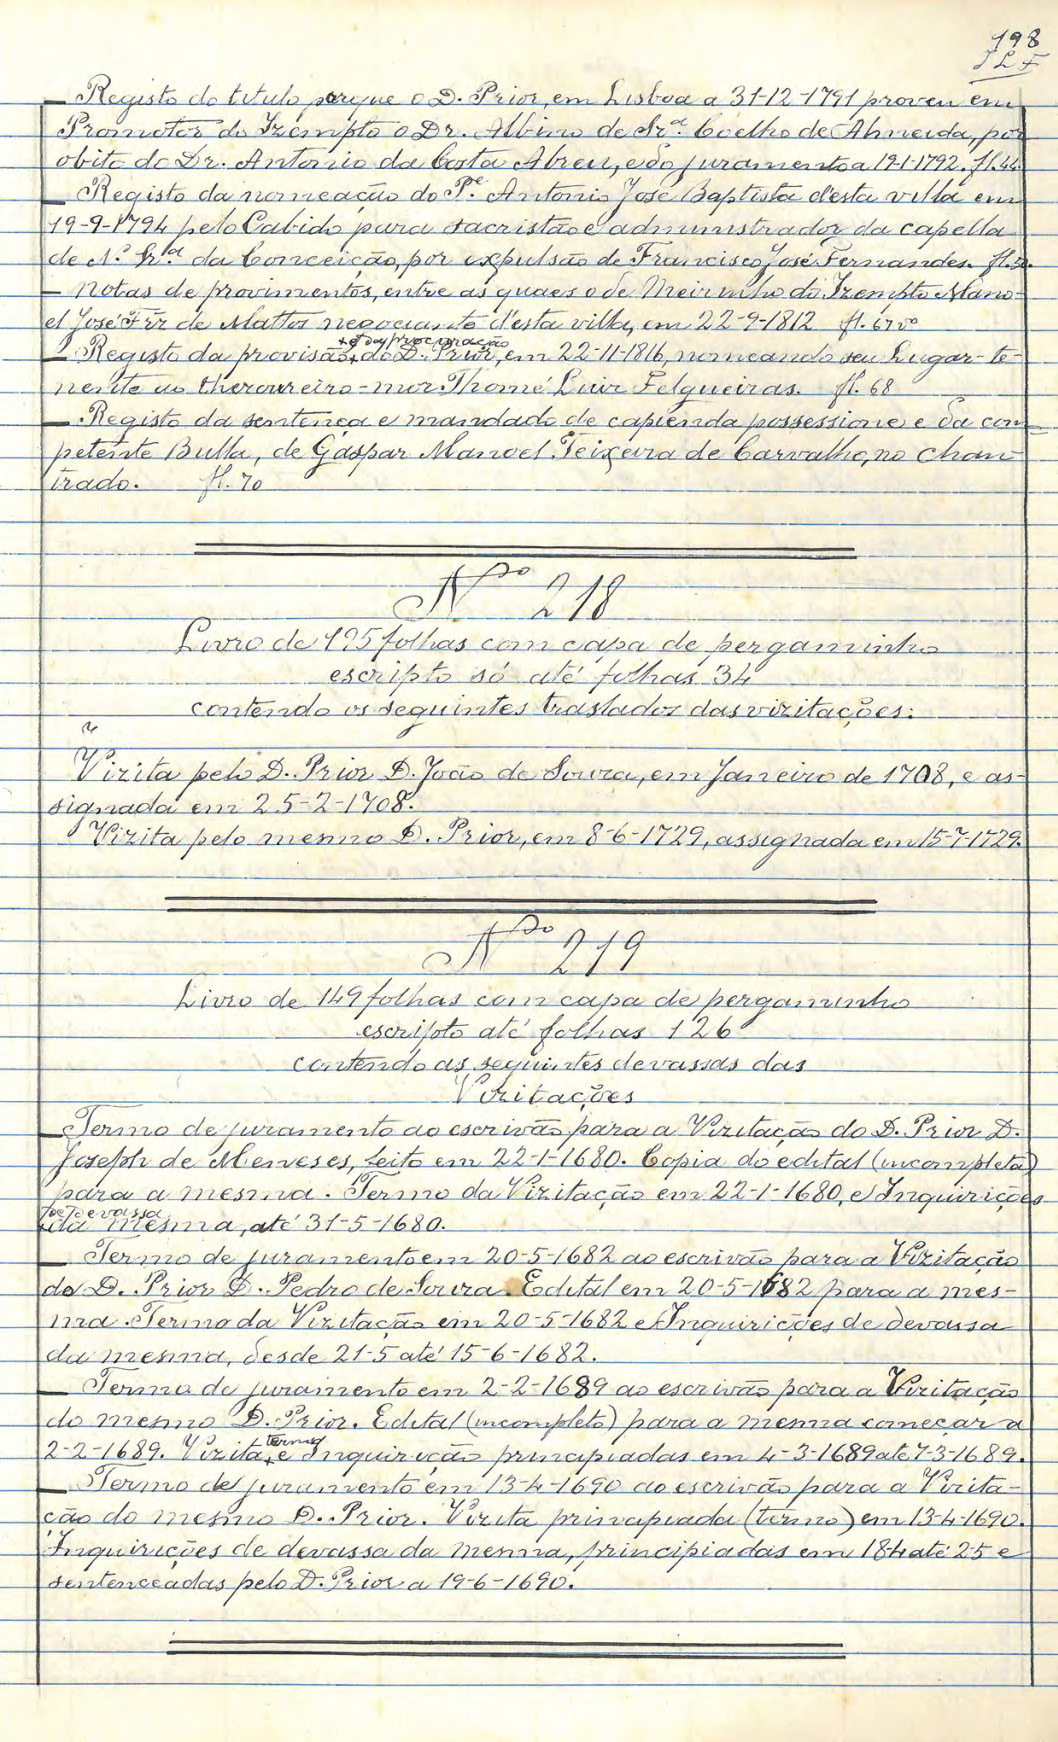 198
J L F
— Registo do titulo porque o D. Prior, em Lisboa a 31-12-1791 proveu em
Promotor do Izempto o Dr. Albino de Sr.ª Coelho de Almeida, por
obito do Dr. Antonio da Costa Abreu, e do juramento a 19-1-1792. fl. 44.
— Registo da nomeação do P.e Antonio José Baptista d'esta villa em
19-9-1794 pelo Cabido para sacristão e administrador da capella
de N.ª Sr.ª da Conceição, por expulsão de Francisco José Fernandes. fl.
— Notas de provimentos, entre as quaes o de Meirinho do Izempto Mano-
el José Frz de Mattos negociante d'esta villa, em 22-9-1812 fl. 67 vº
+ e da procuração
— Registo da provisão + do D. Prior, em 22-11-1816, nomeando seu Lugar-te-
nente ao thezoureiro-mor Thomé Luiz Felgueiras. fl. 68
— Registo da sentença e mandado de capienda possessione e da com-
petente Bulla, de Gaspar Manoel Teixeira de Carvalho, no chan-
trado. fl. 70
N.º 218
Livro de 195 folhas com capa de pergaminho
escripto só até folhas 34
contendo os seguintes traslados das vizitações:
Vizita pelo D. Prior D. João de Souza, em Janeiro de 1708, e as-
signada em 25-2-1708.
Vizita pelo mesmo D. Prior, em 8-6-1729, assignada em 15-7-1729.
N.º 219
Livro de 149 folhas com capa de pergaminho
escripto até folhas 126
contendo as seguintes devassas das
Vizitações
— Termo de juramento ao escrivão para a Vizitação do D. Prior D.
Joseph de Menezes, feito em 22-1-1680. Copia do edital (incompleta)
para a mesma. Termo da Vizitação em 22-1-1680, e Inquirições
de devassa
da mesma, até 31-5-1680.
— Termo de juramento em 20-5-1682 ao escrivão para a Vizitação
do D. Prior D. Pedro de Souza. Edital em 20-5-1682 para a mes-
ma. Termo da Vizitação em 20-5-1682 e Inquirições de devassa
da mesma, desde 21-5 até 15-6-1682.
— Termo de juramento em 2-2-1689 ao escrivão para a Vizitação
do mesmo D. Prior. Edital (incompleto) para a mesma começar a
termo
2-2-1689. Vizita + e Inquirição principiadas em 4-3-1689 até 7-3-1689.
— Termo de juramento em 13-4-1690 ao escrivão para a Vizita-
ção do mesmo D. Prior. Vizita principiada (termo) em 13-4-1690.
Inquirições de devassa da mesma, principiadas em 18-4 até 25 e
sentenceadas pelo D. Prior a 19-6-1690.